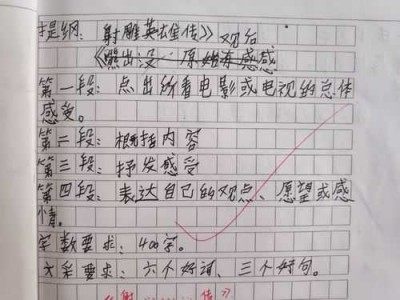 提纲：射雕英雄传》观后
《熊出没·原始有感感
第一段：点出纷看电影或电视的总体
感受。
第二段：概括内容
第三段：抒发感受
第四段：表达自己的观点、愿望或感
情。
字数要求：400字。
文采要求：六个好词、三个好句。